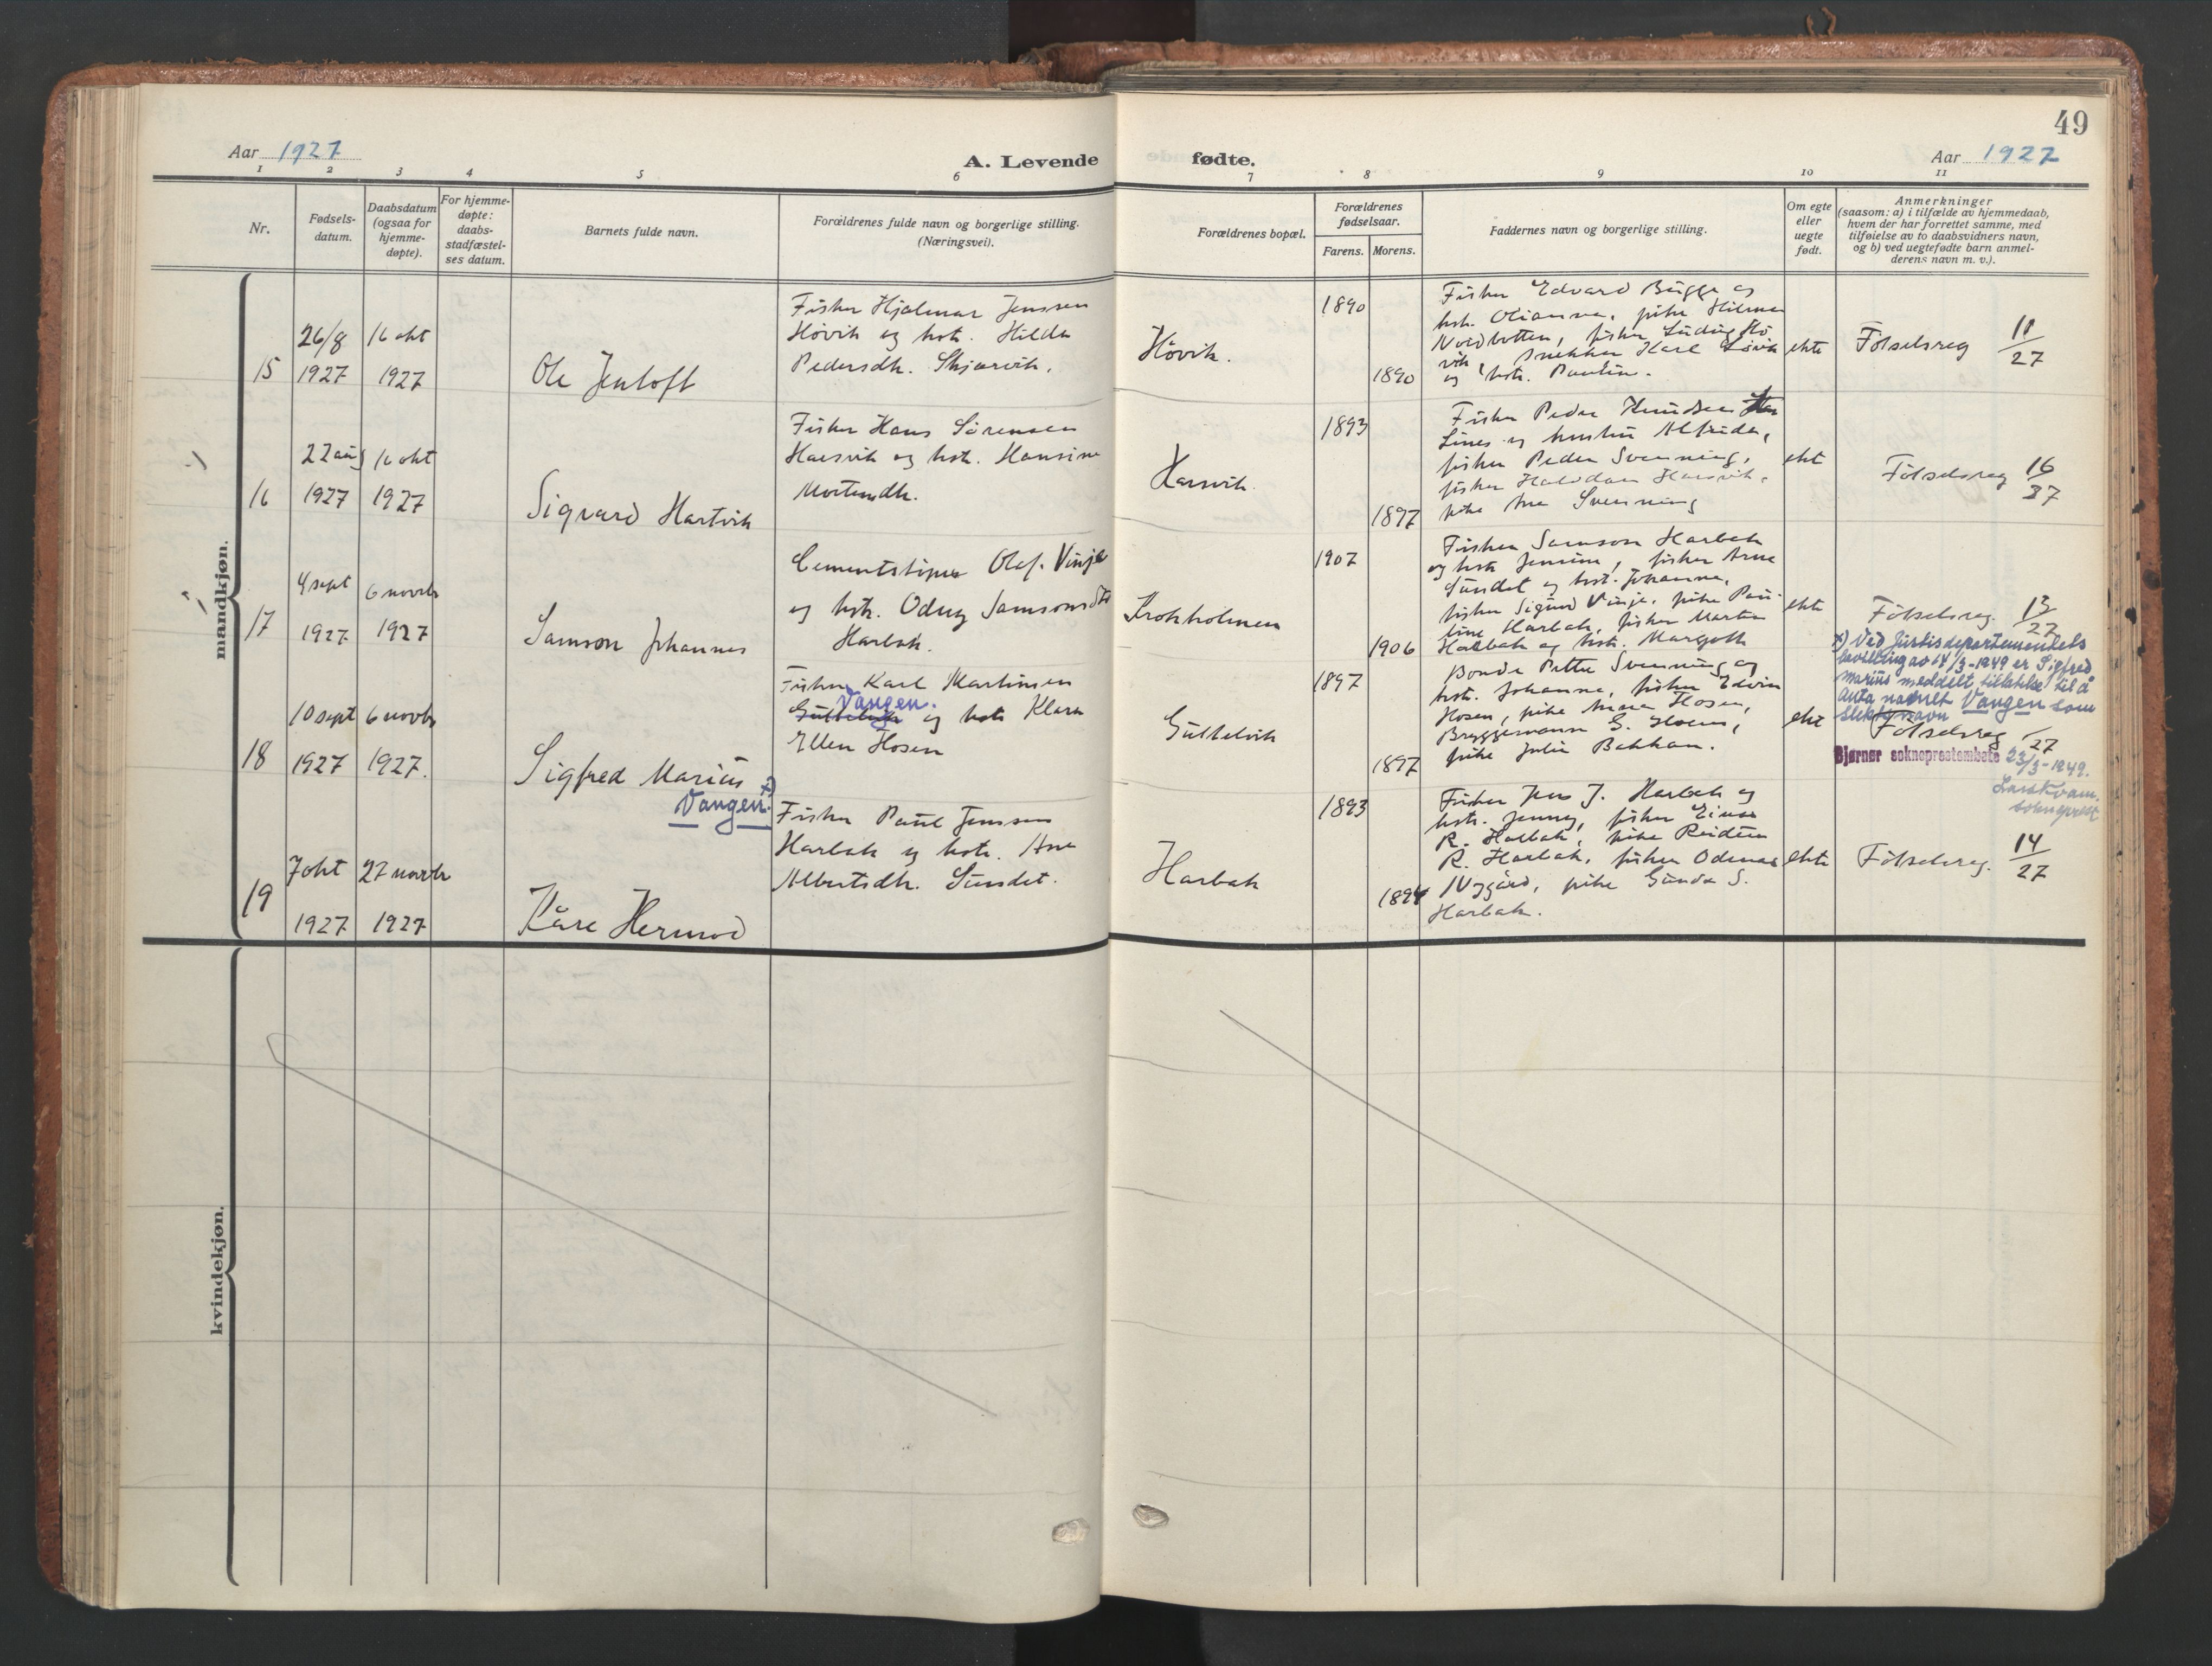 49
Aar 1927
A. Levende
fødte.
Aar 1927
1 2 3 4 5 6 7 8 9 10 11
Nr.
Fødsels-
datum.
Daabsdatum
(ogsaa for
hjemme-
døpte).
For hjemme-
døpte:
daabs-
stadfæstel-
ses datum.
Barnets fulde navn.
Forældrenes fulde navn og borgerlige stilling.
(Næringsvei).
Forældrenes bopæl.
Forældrenes
fødselsaar.
Farens. Morens.
Faddernes navn og borgerlige stilling.
Om egte
eller
uegte
født.
Anmerkninger
(saasom: a) i tilfælde av hjemmedaab,
hvem der har forrettet samme, med
tilføielse av to daabsvidners navn,
og b) ved uegtefødte barn anmel-
derens navn m. v.).
mandkjøn.
15
26/8
1927
16 okt
1927
Ole Jentoft
Fisker Hjalmar Jenssen
Høvik og hstr. Hilda
Pedersdtr. Skjærvik.
Høvik.
1890
1890
Fisker Edvard Bugge og
hstr. Olianna, pike Hilma
Nordbotten, fisker Ludvig Hø
vik, snekker Karl
og hstr. Pauline.
ekte
Fölselsreg 11/27
16
22 aug
1927
16 okt
1927
Sigvard Hartvik
Fisker Hans Sörensen
Harsvik og hstr. Hansine
Mortensdtr.
Harsvik
1893
1897
Fisker Peder Knudsen
Lines og hustru Alfrida,
fisker Peder Svenning,
fisker Halvdan Harsvik,
pike Ana Svenning
ekt
Fölselsreg 16/37
17
4 sept
1927
6 novbr
1927
Samson Johannes
Cementstöper Olaf Vinje
og hstr. Odny Samsonsdtr
Harbak.
Krokholmen
1907
1906
Fisker Samson Harbak
og hstr Jensine, fisker Arne
Sundet og hstr. Johanna,
fisker Sigurd Vinje, pike Pau-
line Harbak, fisker Martin
Harbak og hstr. Margoth
ekte
Fölselsreg. 13/27
18
10 sept
1927
6 novbr
1927.
Sigfred Marius x)
Vangen.
Fisker Karl Martinsen
Vangen.
Gultelvik og hstr Klara
Ellen Hosen
Gultelvik
1897
1897
Bonde Petter Svenning og
hstr. Johanna, fisker Edvin
Hosen, pike Hosen,
Bryggemann G. Hosen,
pike Julie Bakkan.
ekt
x) Ved Justisdepartementets
bevilling av 14/3-1949 er Sigfred
Marius meddelt tillatelse til å
anta navnet Vangen som
slektsnavn
Fölselsreg /27
Bjørnør sokneprestembete 23/3-1949.
sokneprest
19
7 okt
1927
27 novbr
1927
Kåre Hermod
Fisker Paul Jenssen
Harbak og hstr. Ane
Albertsdtr. Sundet.
Harbak
1893
1894
Fisker Jens J. Harbak og
hstr. Jenny, fisker Einar
R. Harbak, pike Reidun
R. Harbak, fisker Odmar
Nygård, pike Gunda S.
Harbak.
ekte
Fölselsreg. 14/27
kvindekjøn.